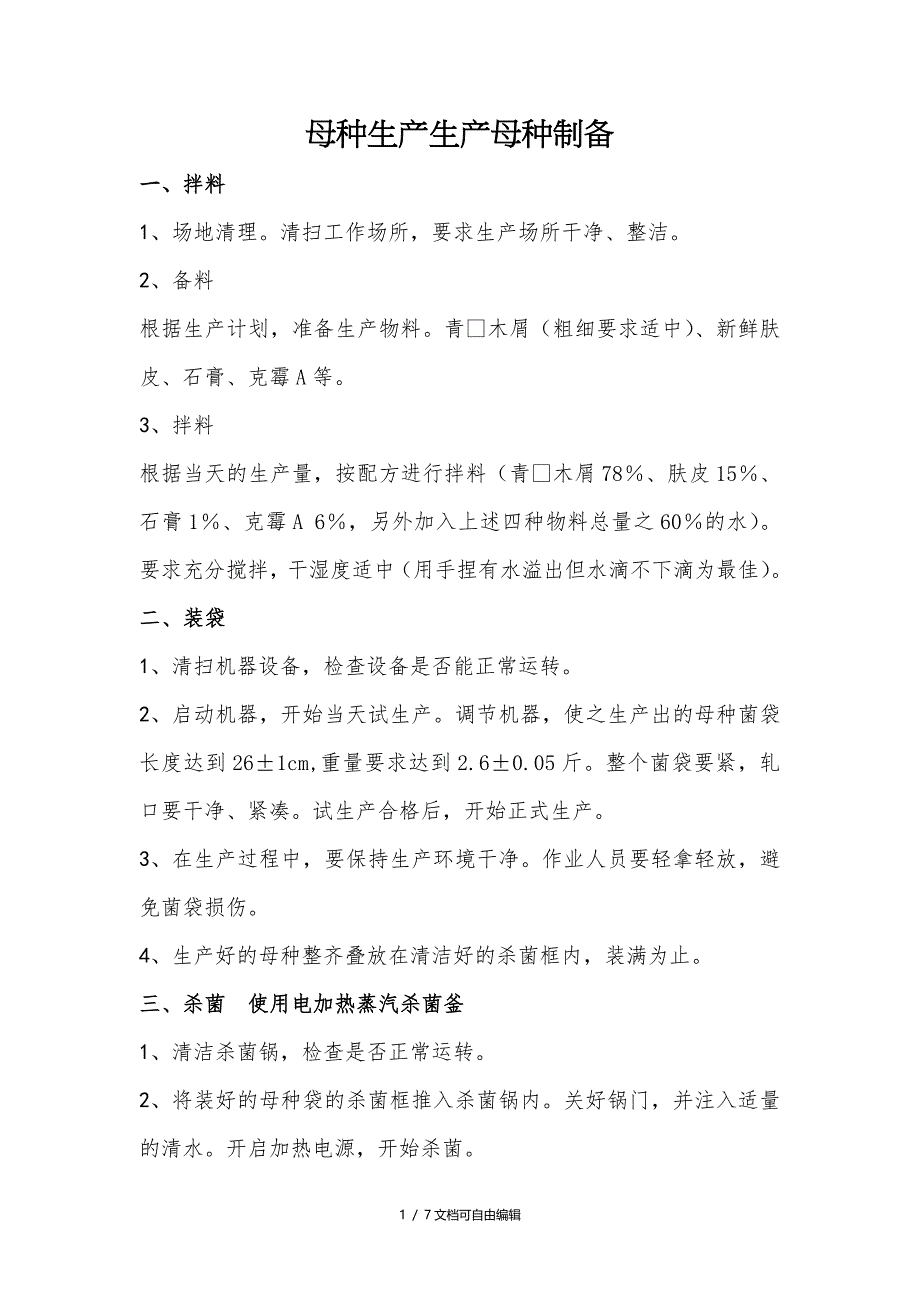 母种生产生产母种制备
一、拌料
1、场地清理。清扫工作场所，要求生产场所干净、整洁。
2、备料
根据生产计划，准备生产物料。青□木屑（粗细要求适中）、新鲜肤
皮、石膏、克霉A等。
3、拌料
根据当天的生产量，按配方进行拌料（青□木屑78％、肤皮15％、
石膏1％、克霉A 6％，另外加入上述四种物料总量之60％的水）。
要求充分搅拌，干湿度适中（用手捏有水溢出但水滴不下滴为最佳）。
二、装袋
1、清扫机器设备，检查设备是否能正常运转。
2、启动机器，开始当天试生产。调节机器，使之生产出的母种菌袋
长度达到26±1cm,重量要求达到2.6±0.05斤。整个菌袋要紧，轧
口要干净、紧凑。试生产合格后，开始正式生产。
3、在生产过程中，要保持生产环境干净。作业人员要轻拿轻放，避
免菌袋损伤。
4、生产好的母种整齐叠放在清洁好的杀菌框内，装满为止。
三、杀菌　使用电加热蒸汽杀菌釜
1、清洁杀菌锅，检查是否正常运转。
2、将装好的母种袋的杀菌框推入杀菌锅内。关好锅门，并注入适量
的清水。开启加热电源，开始杀菌。
1 / 7文档可自由编辑